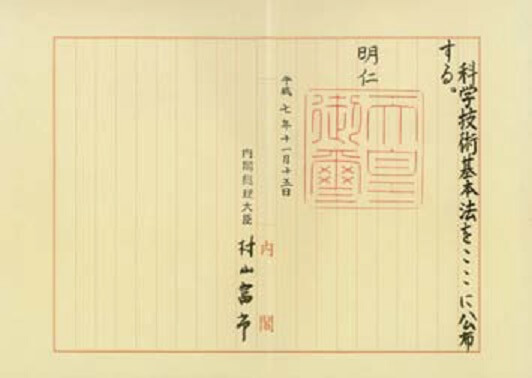 科学技術基本法をここに公布
する。
明仁
天皇
御璽
平成七年十一月十五日
内閣総理大臣 村山富市
内閣